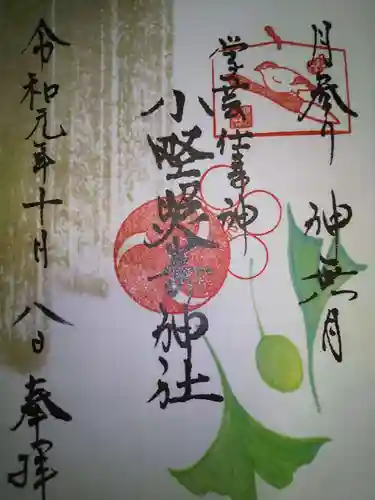 月参り 神無月
学業芸能仕事神
小野照崎神社
令和元年十月八日 奉拝